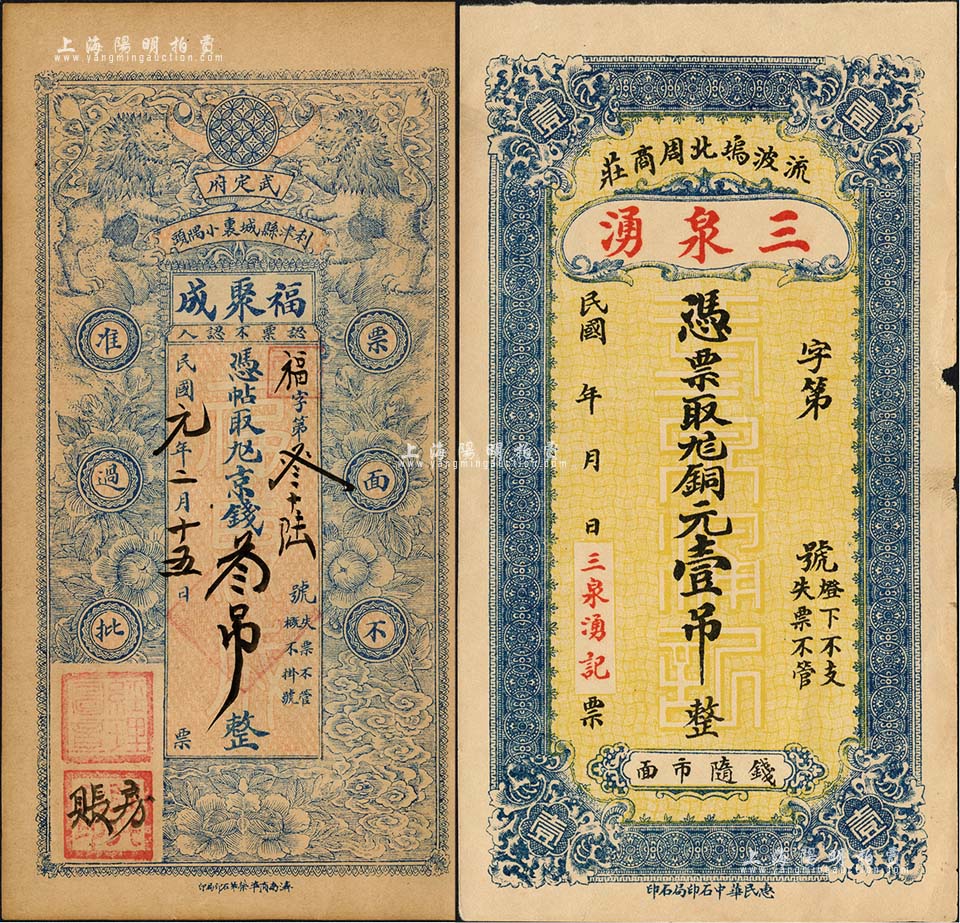 上海陽明拍賣
www.yangmingauction.com
武定府
利津縣城裏小隅頭
福聚成
認票不認人
福字第叁十陸號
失票不管
概不掛號
憑帖取兌京錢叁吊整
民國元年二月十五日
票
票面不
准過批
賬房
上海陽明拍賣
www.yangmingauction.com
壹
壹
流波塢北周商莊
三泉湧
字第
號
燈下不支
失票不管
憑票取兌銅元壹吊整
民國 年 月 日
三泉湧記
票
錢隨市面
壹
壹
惠民華中石印局石印
上海陽明拍賣
www.yangmingauction.com